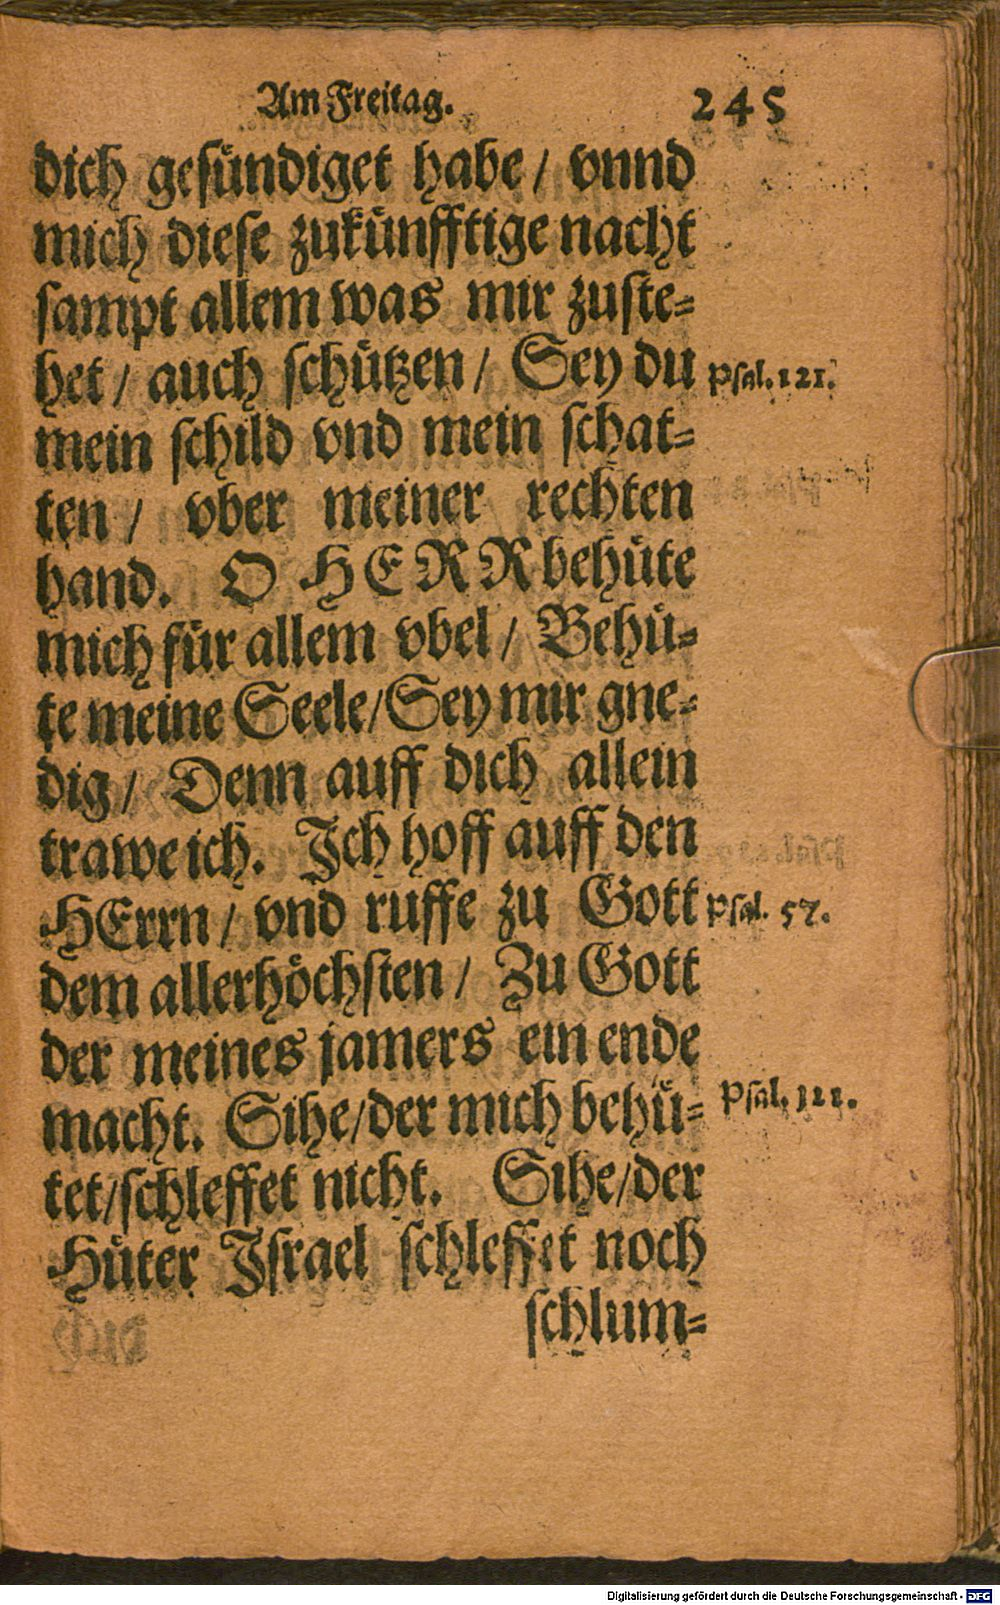 Am Freitag. 245
dich gesündiget habe / vnnd
mich diese zukünfftige nacht
sampt allem was mir zuste-
het / auch schützen / Sey du Psal. 121.
mein schild vnd mein schat-
ten / vber meiner rechten
hand. O HERR behüte
mich für allem vbel / Behü-
te meine Seele / Sey mir gne-
dig / Denn auff dich allein
trawe ich. Ich hoff auff den
HErrn / vnd ruffe zu Gott Psal. 57.
dem allerhöchsten / Zu Gott
der meines jamers ein ende
macht. Sihe / der mich behü- Psal. 121.
tet / schleffet nicht. Sihe / der
Hüter Israel schleffet noch
schlum-
Digitalisierung gefördert durch die Deutsche Forschungsgemeinschaft - DFG